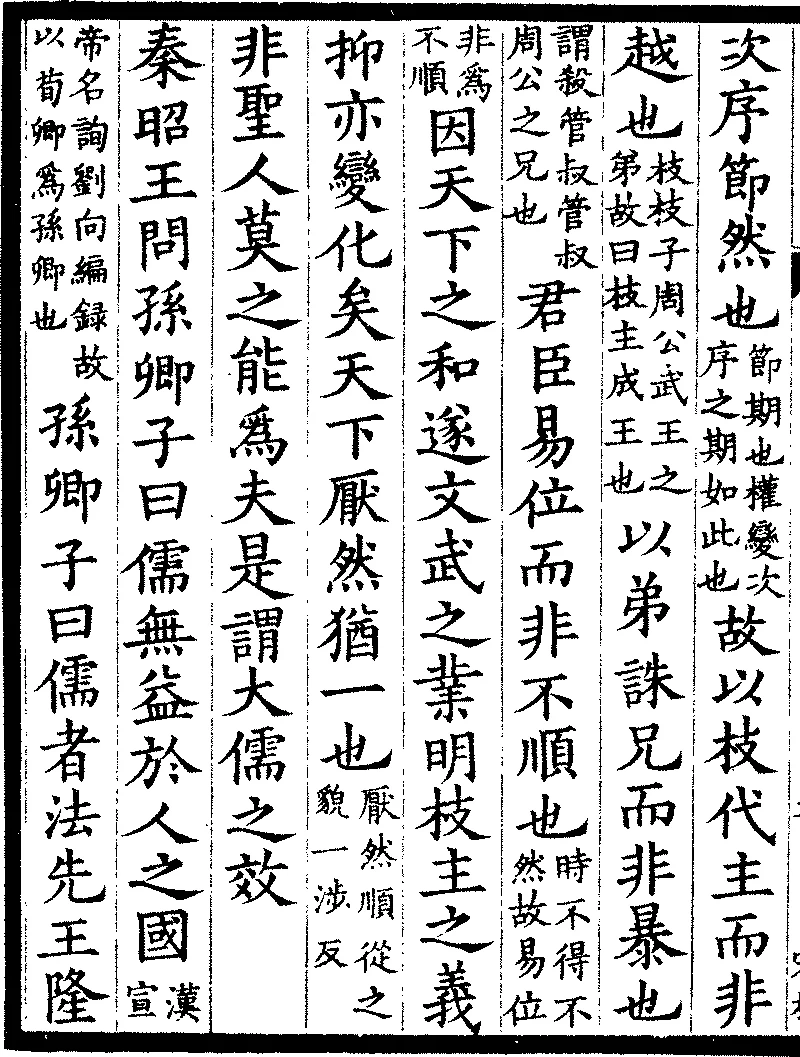 次序節然也節期也權變次序之期如此也故以枝代主而非
越也枝枝子周公武王之弟故曰枝主成王也以弟誅兄而非暴也
謂殺管叔管叔周公之兄也君臣易位而非不順也時不得不然故易位
非為不順因天下之和遂文武之業明枝主之義
抑亦變化矣天下厭然猶一也厭然順從之貌一涉反
非聖人莫之能爲夫是謂大儒之效
秦昭王問孫卿子曰儒無益於人之國漢宣
帝名詢劉向編録故以荀卿爲孫卿也孫卿子曰儒者法先王隆